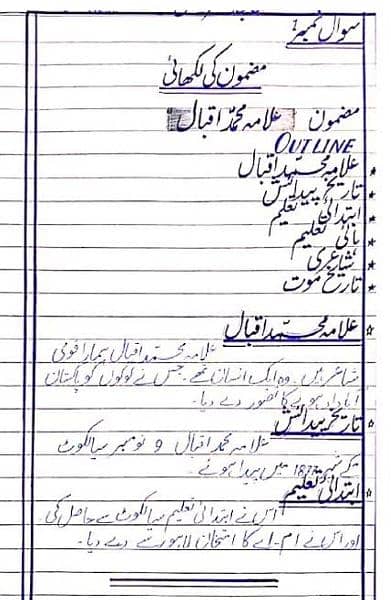 سوال نمبر 1
مضمون کی لکھائی
مضمون علامہ محمد اقبال
OUTLINE
علامہ محمد اقبال
تاریخ پیدائش
ابتدائی تعلیم
ہائی تعلیم
شاعری
تاریخ موت
علامہ محمد اقبال
علامہ محمد اقبال ہمارا قومی
شاعر ہیں۔ وہ ایک انسان تھے جس نے لوگوں کو پاکستان
ہونے کا تصور دے دیا۔
تاریخ پیدائش
علامہ محمد اقبال 9 نومبر سیالکوٹ
میں پیدا ہوئے۔
ابتدائی تعلیم
اس نے ابتدائی تعلیم سیالکوٹ سے حاصل کی
اور اس نے ام۔اے کا امتحان لاہور سے دے دیا۔